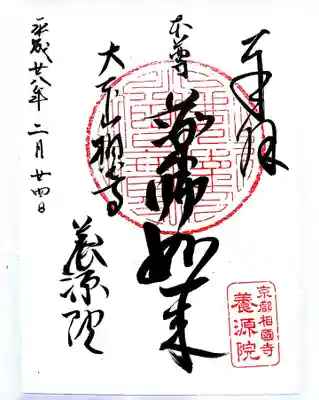 奉拝
本尊
薬師如来
大本山相国寺
養源院
平成廿八年 二月 廿四日
京都相國寺
養源院